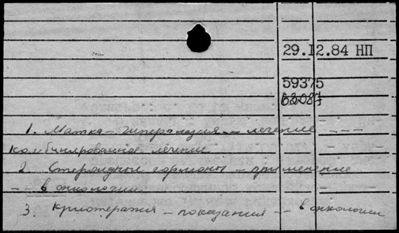 29.12.84 НП
59375
62087
1. Матка - гиперплазия - лечение
комбинированное лечение
2. Стероидные гормоны - применение
- в онкологии
3. Криотерапия - показания - в онкологии